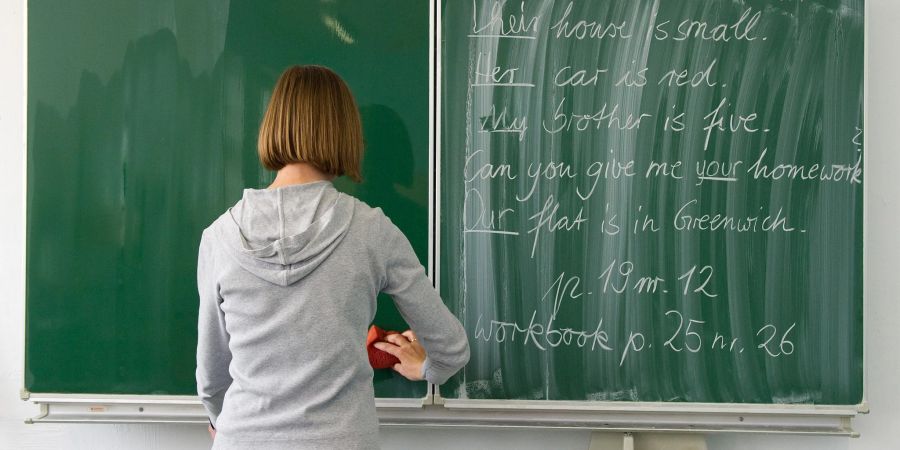 Their house is small.
Her car is red.
My brother is five.
Can you give me your homework?
Our flat is in Greenwich.
p. 19 nr. 12
workbook p. 25 nr. 26